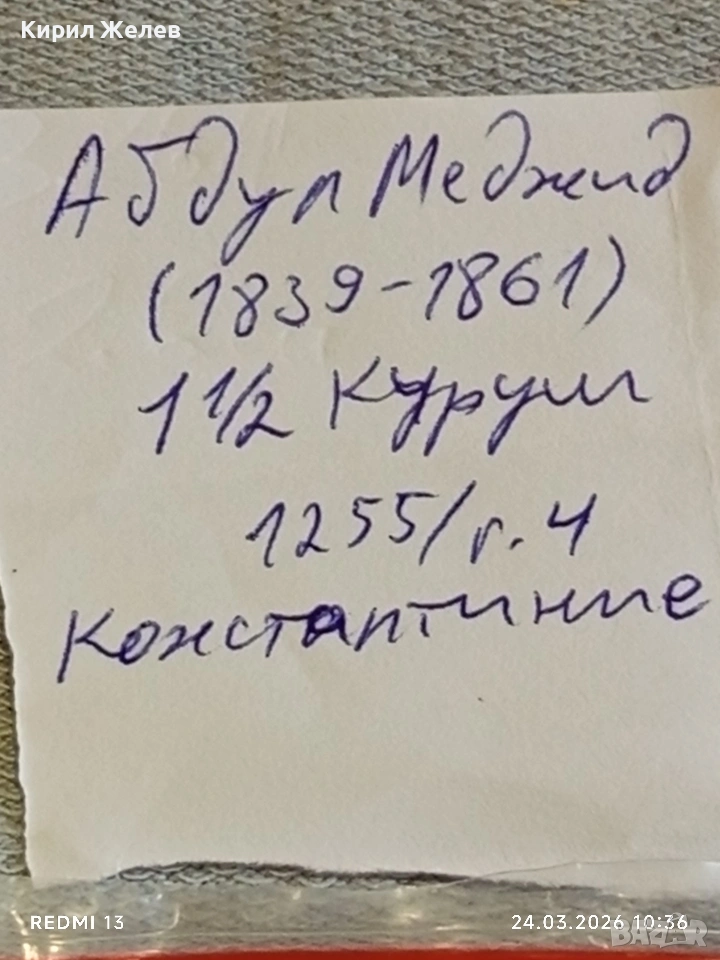 Кирил Желев
Абдул Меджид
(1839-1861)
1 1/2 Куруш
1255/г. 4
Константиние
REDMI 13
24.03.2026 10:36
BAZAR